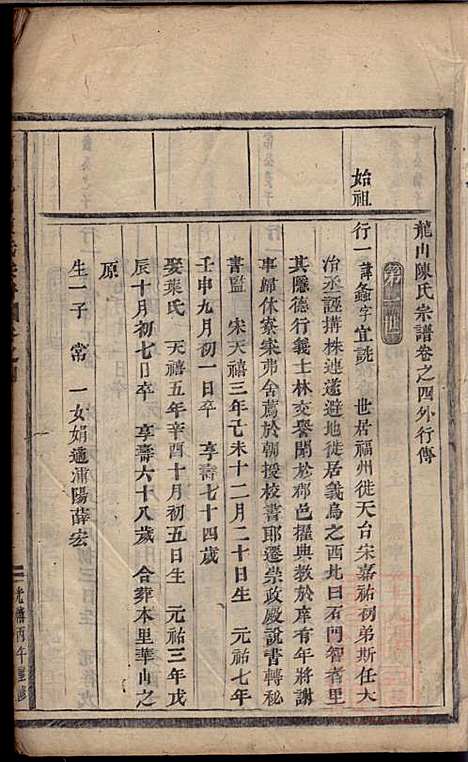 龍山陳氏宗譜卷之四外行傳
第一世
始祖
行一諱螽字宜詵 世居福州徙天台宋嘉祐初弟斯任大
冶丞誣搆株連遂避地徙居義烏之西北曰石門智者里
其隱德行義士林交譽聞於郡邑擢典教於庠有年將謝
事歸休寮寀弗舍薦於朝授校書郎遷崇政殿說書轉秘
書監 宋天禧三年己未十二月二十日生 元祐七年
壬申九月初一日卒 享壽七十四歲
娶葉氏 天禧五年辛酉十月初五日生 元祐三年戊
辰十月初七日卒 享壽六十八歲 合葬本里華山之
原
生一子 常 一女娟適浦陽薛宏
光緒丙午重修